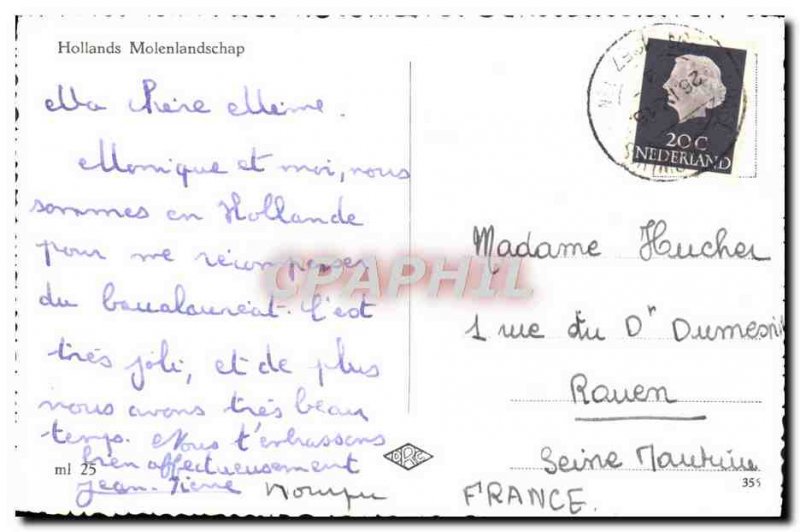 Hollands Molenlandschap
Ma chère Mémé.
Monique et moi, nous
sommes en Hollande
pour me récompenser
du baccalauréat. C'est
très joli, et de plus
nous avons très beau
temps. Nous t'embrassons
bien affectueusement
Jean-Pierre
ml 25
20 C
NEDERLAND
Madame Hucher
1 rue du Dr Dumesnil
Rouen
Seine Maritime
FRANCE.
355
CPAPHIL